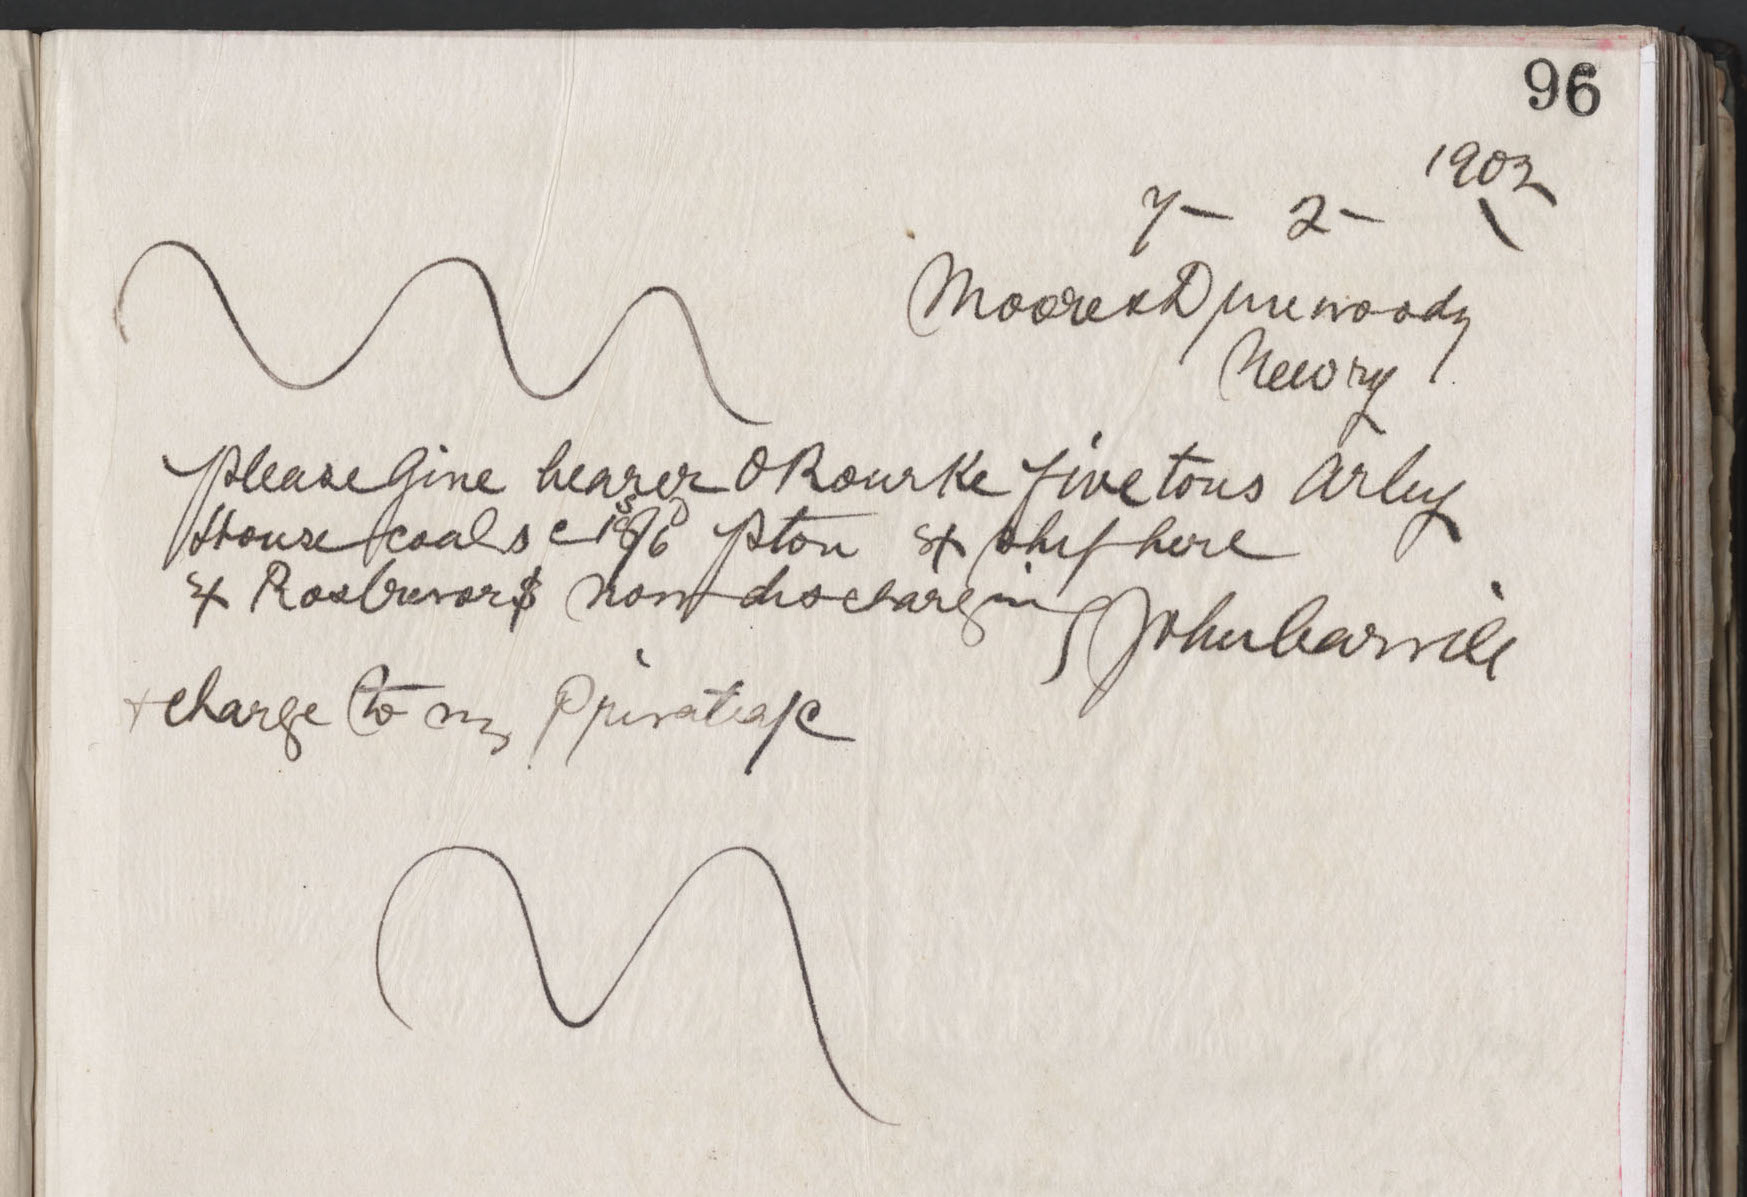 96
1902
7 - 2 -
Moore & Dinwoody
Newry
Please Give bearer O Rourke five tons Arley
House coals @ 18s/6d pton ex ship here
ex Rostrevor SS now discharging John Carvill
+ charge to my Private a/c